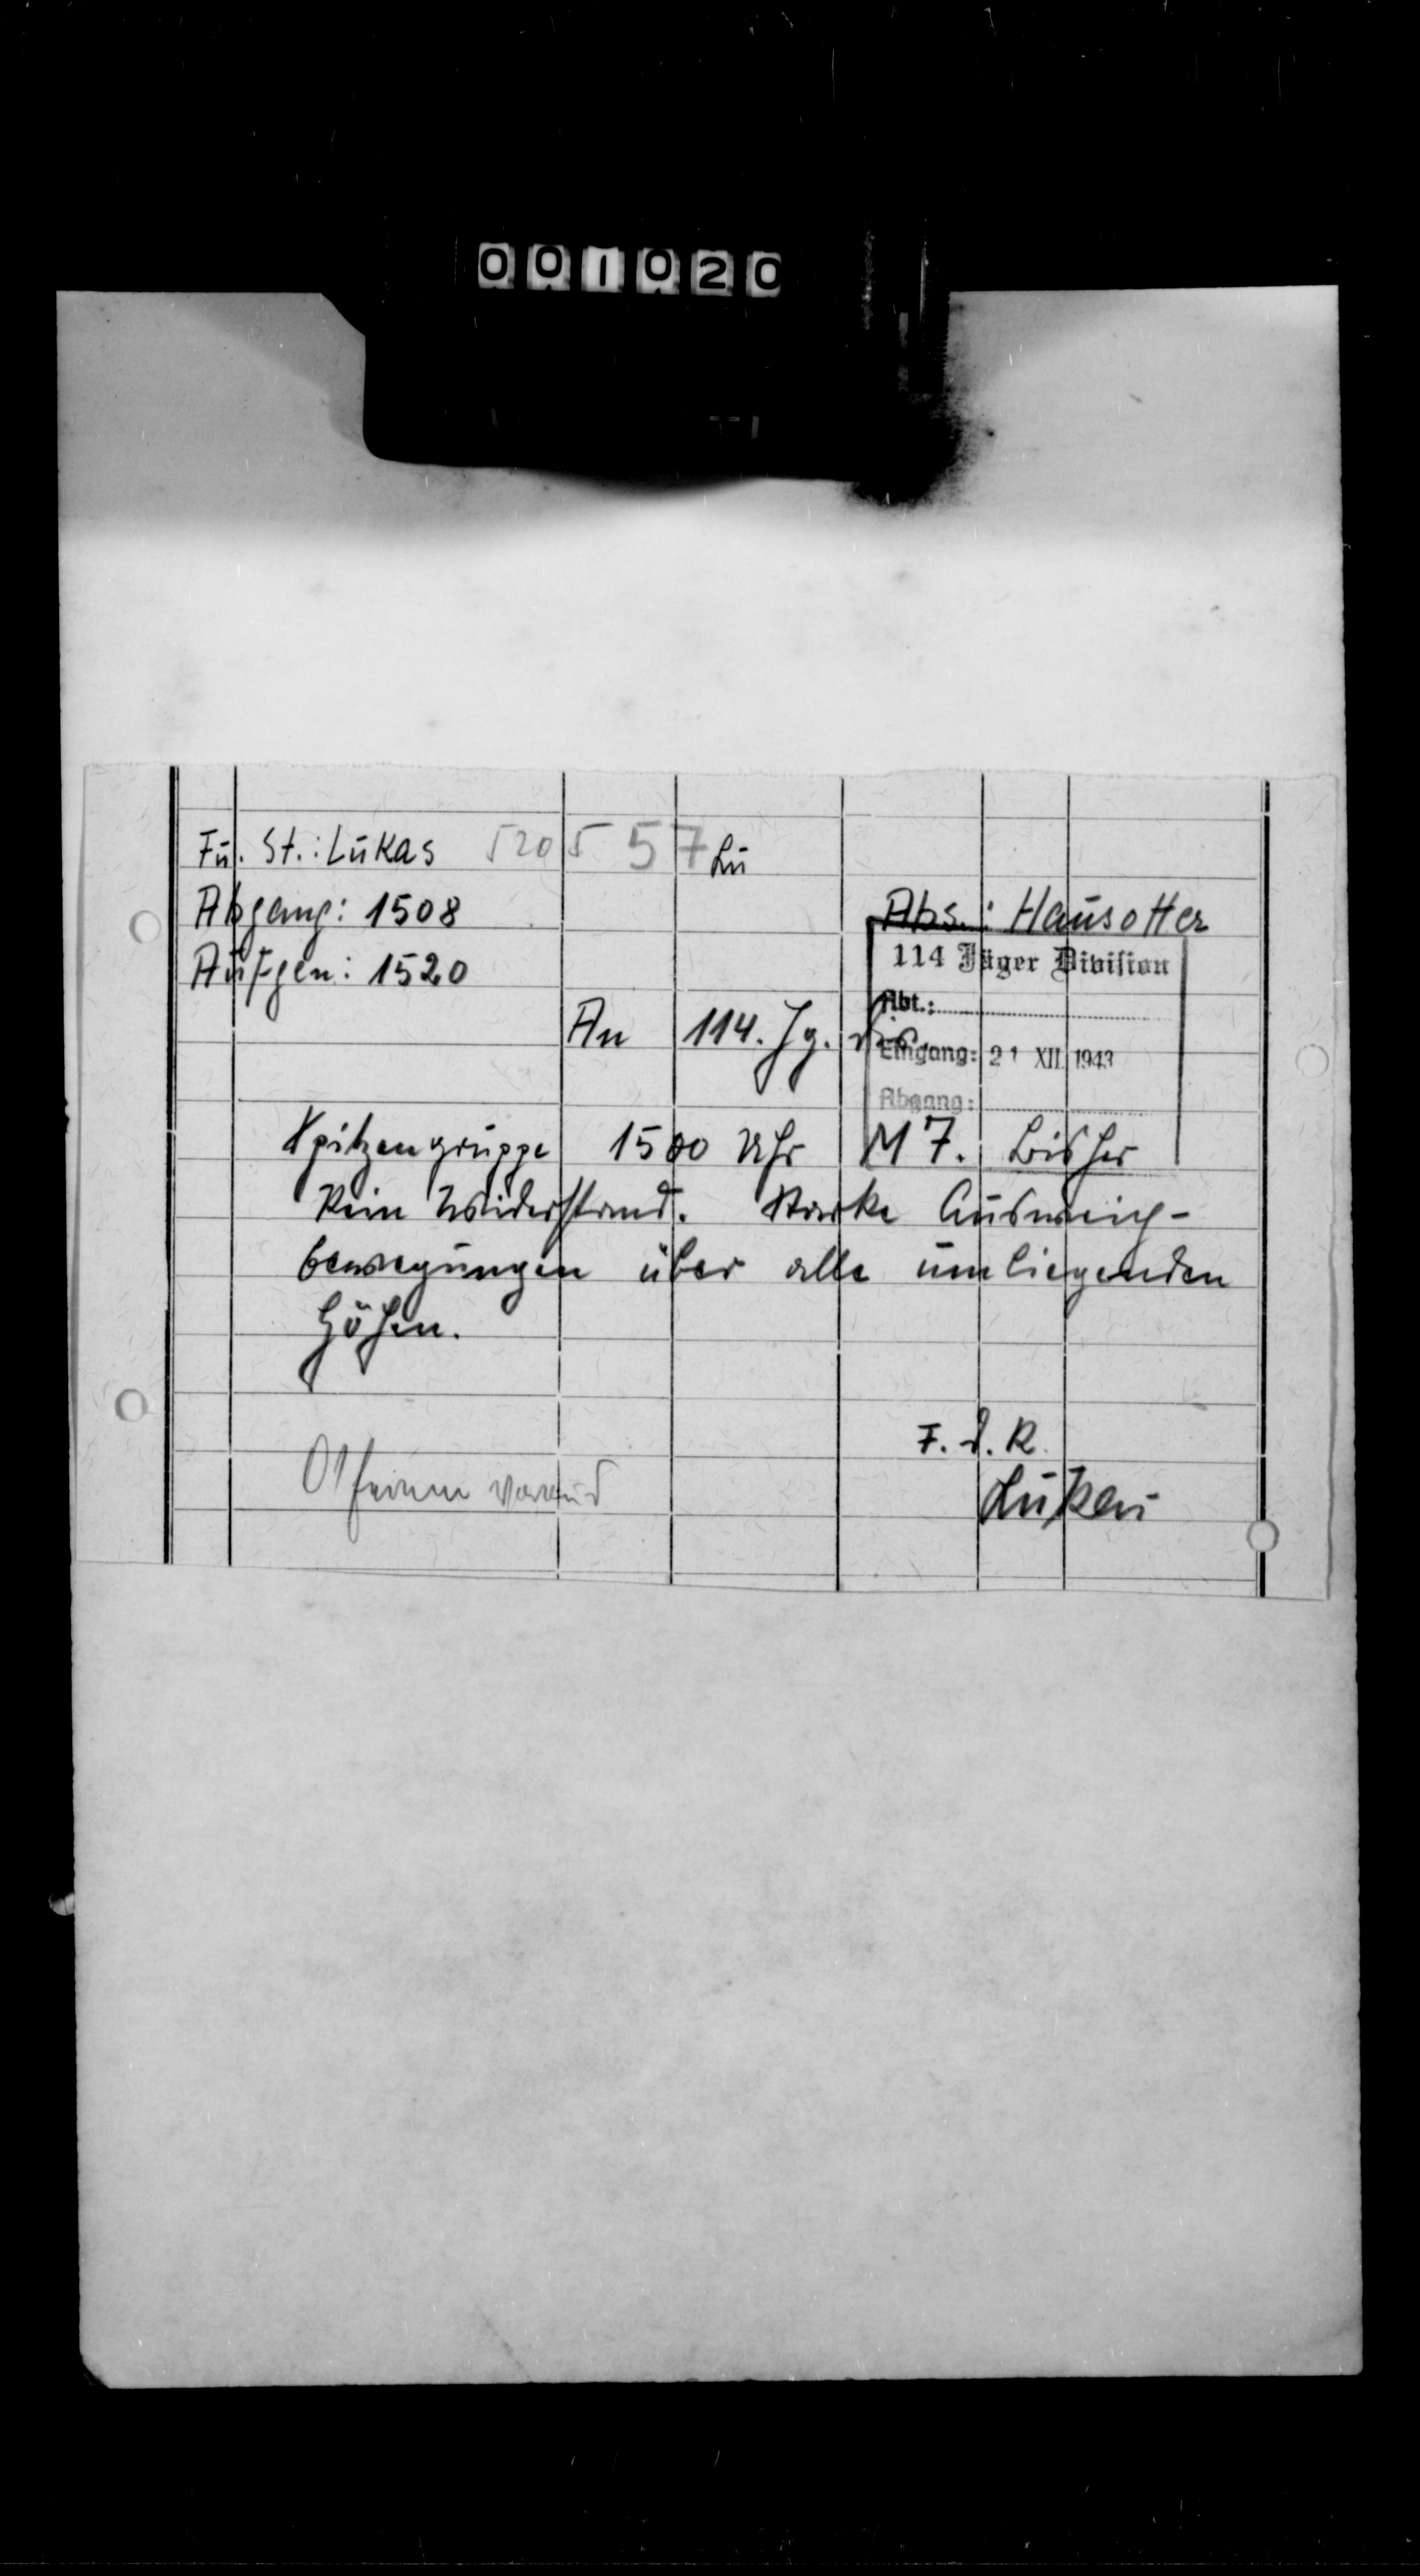 001020
Fu. St.: Lukas 520 5 57 Lu
Abgang: 1508
Abs.: Hausotter
Aufgen: 1520
114 Jäger Division
Abt.:
An 114. Jg. Div.
Eingang: 21 XII. 1943
Abgang:
Spitzengruppe 1500 Uhr M 7. Bisher
kein Widerstand. Starke Ausweich-
bewegungen über alle umliegenden
Höhen.
F. d. R.